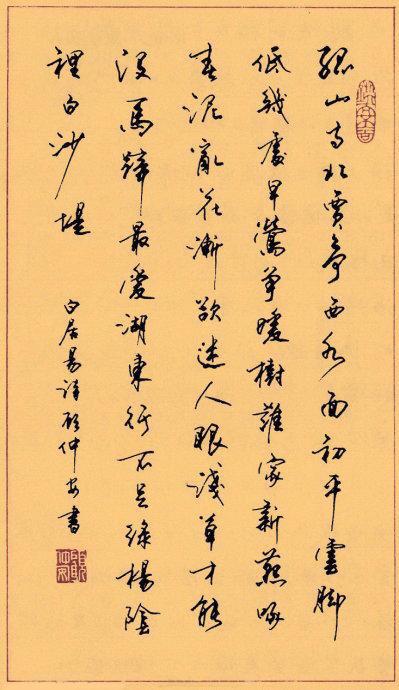 孤山寺北賈亭西水面初平雲脚
低幾處早鶯爭暖樹誰家新燕啄
春泥亂花漸欲迷人眼淺草才能
没馬蹄最愛湖東行不足綠楊陰
裡白沙堤
白居易詩顧仲安書